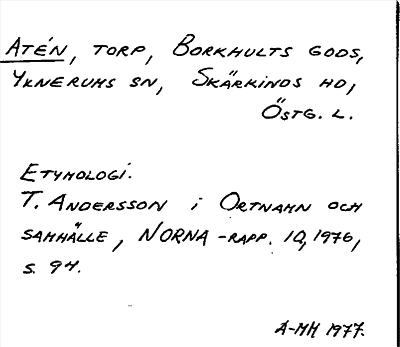 ATÉN, TORP, BORKHULTS GODS,
YXNERUMS SN, SKÄRKINDS HD,
ÖSTG. L.
ETYMOLOGI.
T. ANDERSSON i ORTNAMN OCH
SAMHÄLLE, NORNA-RAPP. 10, 1976,
S. 94.
A-MH 1977.